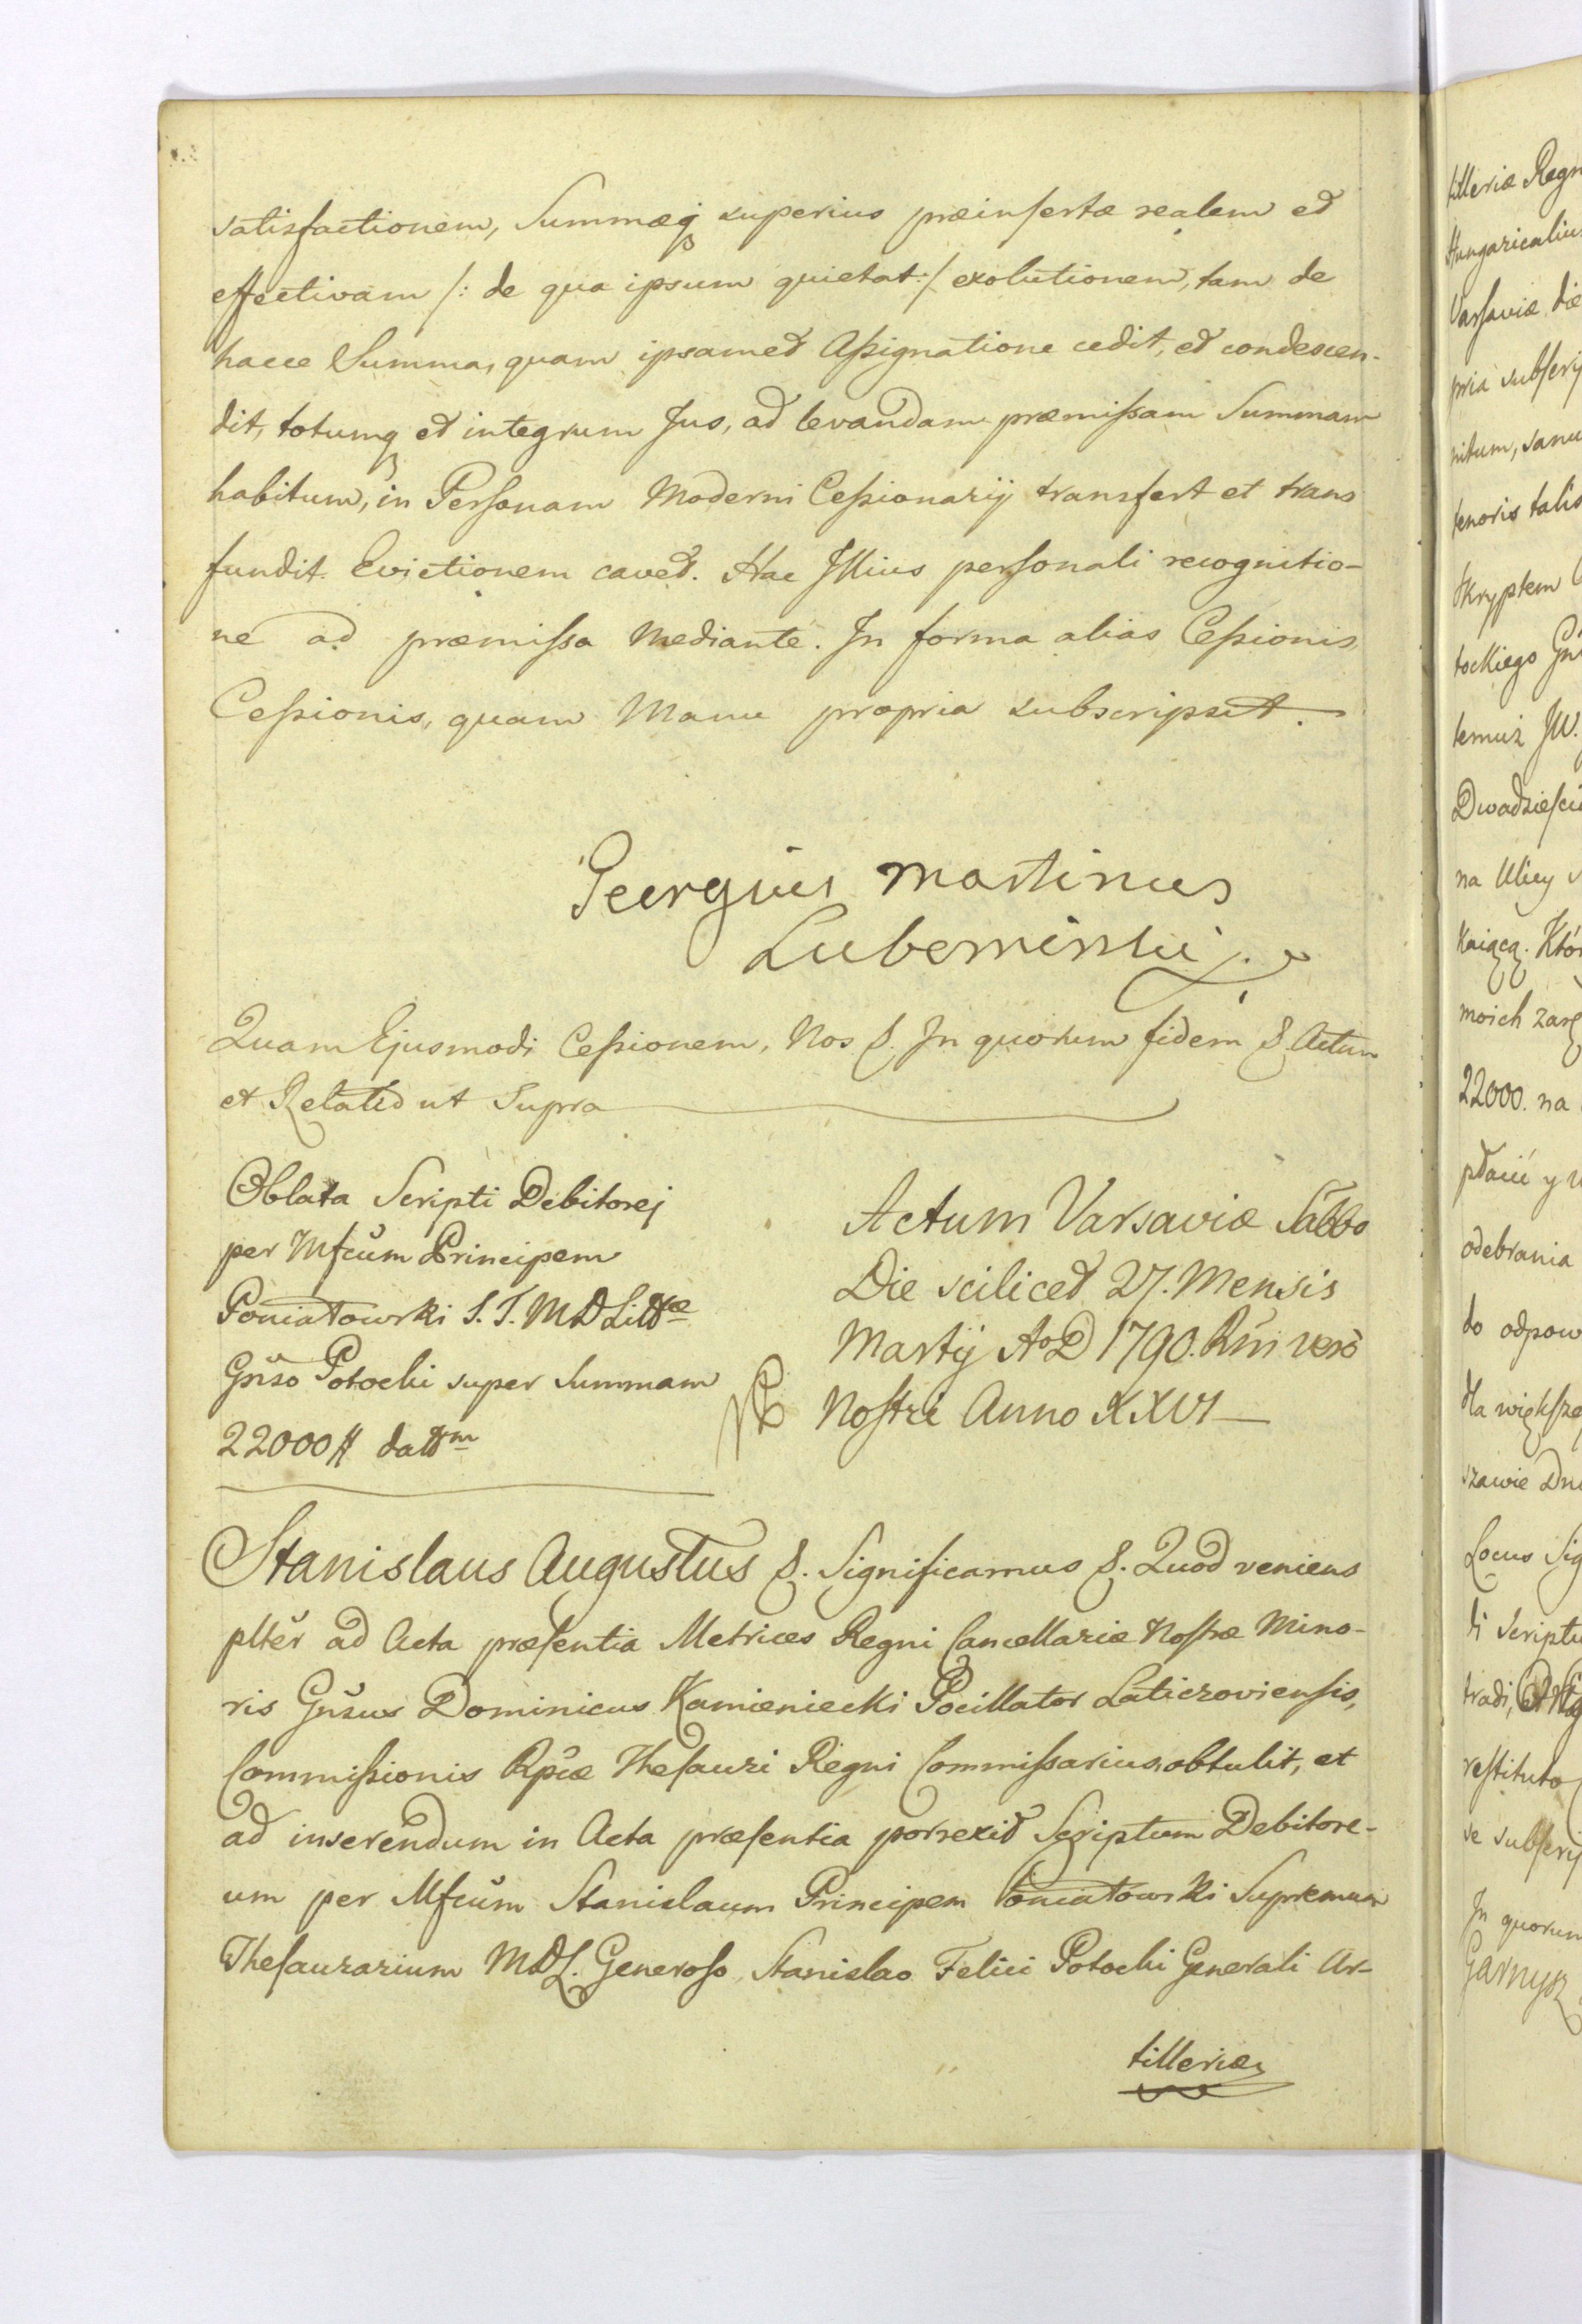 satisfactionem, Summæq superius præinsertæ realem et
effectivam /: de qua ipsum quietat :/ exolutionem, tam de
hacce Summa, quam ipsamet Aſsignatione cedit, et condescen-
dit, totumq et integrum Jus, ad levandam præmiſsam Summam
habitum, in Perſonam Moderni Ceſsionarij transfert et trans
fundit. Evictionem cavet. Hac Illius perſonali recognitio-
ne ad præmiſsa Mediante. In forma alias Ceſsionis,
Ceſsionis, quam Manu propria subscripsit.
Georgius Martinus
Quam Ejusmodi Ceſsionem, Nos &. In quorum fidem & Actum
et Relatio ut Supra
Oblata Scripti Debitorej
per Mfcum Principem
Poniatowski S. T. M D Littæ
Gnso Potocki super Summam
22000 # dattm
Actum Varsaviæ Sabbo
Die scilicet 27. Mensis
Martij AoD 1790. Rni vero
Noſtri Anno XXVI
Stanislaus Augustus &. Significamus &. Quod veniens
plter ad Acta præſentia Metrices Regni Cancellariæ Noſtræ Mino-
ris Gnsus Dominicus Kamieniecki Pocillator Laticzovienſis,
Commiſsionis Rpcæ Theſauri Regni Commiſsarius obtulit, et
ad inserendum in Acta præſentia porrexit Scriptum Debitore-
um per Mfcum Stanislaum Principem Poniatowski Supremum
Theſaurarium MDL. Generoſo Stanislao Felici Potocki Generali Ar-
tilleriæ
tilleriæ Regn
Hungaricaliu
Varſaviæ die
pria subſcrip
nitum, sanu
tenoris talis
Skryptem
tockiego
temuż JW.
Dwadzieſcia
na Ulicy
Kniącą. Któr
moich zarę
22000. na
płacić y
odebrania
do odpow
dla więkſze
szawie Dni
Locus Sig
ti Scriptu
tradi,
reſtituto
se subſcrip
In quorum
Garnysz